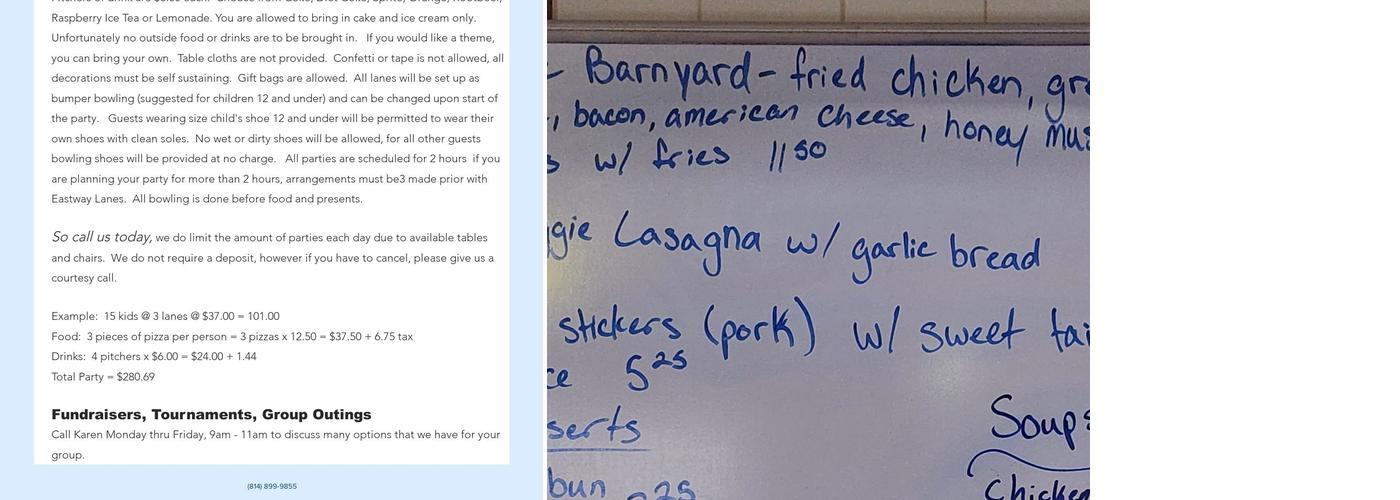 Raspberry Ice Tea or Lemonade. You are allowed to bring in cake and ice cream only.
Unfortunately no outside food or drinks are to be brought in. If you would like a theme,
you can bring your own. Table cloths are not provided. Confetti or tape is not allowed, all
decorations must be self sustaining. Gift bags are allowed. All lanes will be set up as
bumper bowling (suggested for children 12 and under) and can be changed upon start of
the party. Guests wearing size child's shoe 12 and under will be permitted to wear their
own shoes with clean soles. No wet or dirty shoes will be allowed, for all other guests
bowling shoes will be provided at no charge. All parties are scheduled for 2 hours if you
are planning your party for more than 2 hours, arrangements must be3 made prior with
Eastway Lanes. All bowling is done before food and presents.
So call us today, we do limit the amount of parties each day due to available tables
and chairs. We do not require a deposit, however if you have to cancel, please give us a
courtesy call.
Example: 15 kids @ 3 lanes @ $37.00 = 101.00
Food: 3 pieces of pizza per person = 3 pizzas x 12.50 = $37.50 + 6.75 tax
Drinks: 4 pitchers x $6.00 = $24.00 + 1.44
Total Party = $280.69
Fundraisers, Tournaments, Group Outings
Call Karen Monday thru Friday, 9am - 11am to discuss many options that we have for your
group.
(814) 899-9855
- Barnyard - fried chicken,
, bacon, american cheese, honey
w/ fries 11 50
Lasagna w/ garlic bread
stickers (pork) w/ sweet
5 25
Soup
bun 25